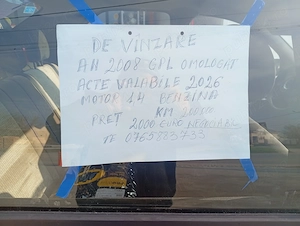 DE VINZARE
AN 2008 GPL OMOLOGAT
ACTE VALABILE 2026
MOTOR 1.4 BENZINA
KM
PRET 2000 EURO NEGOCIABIL